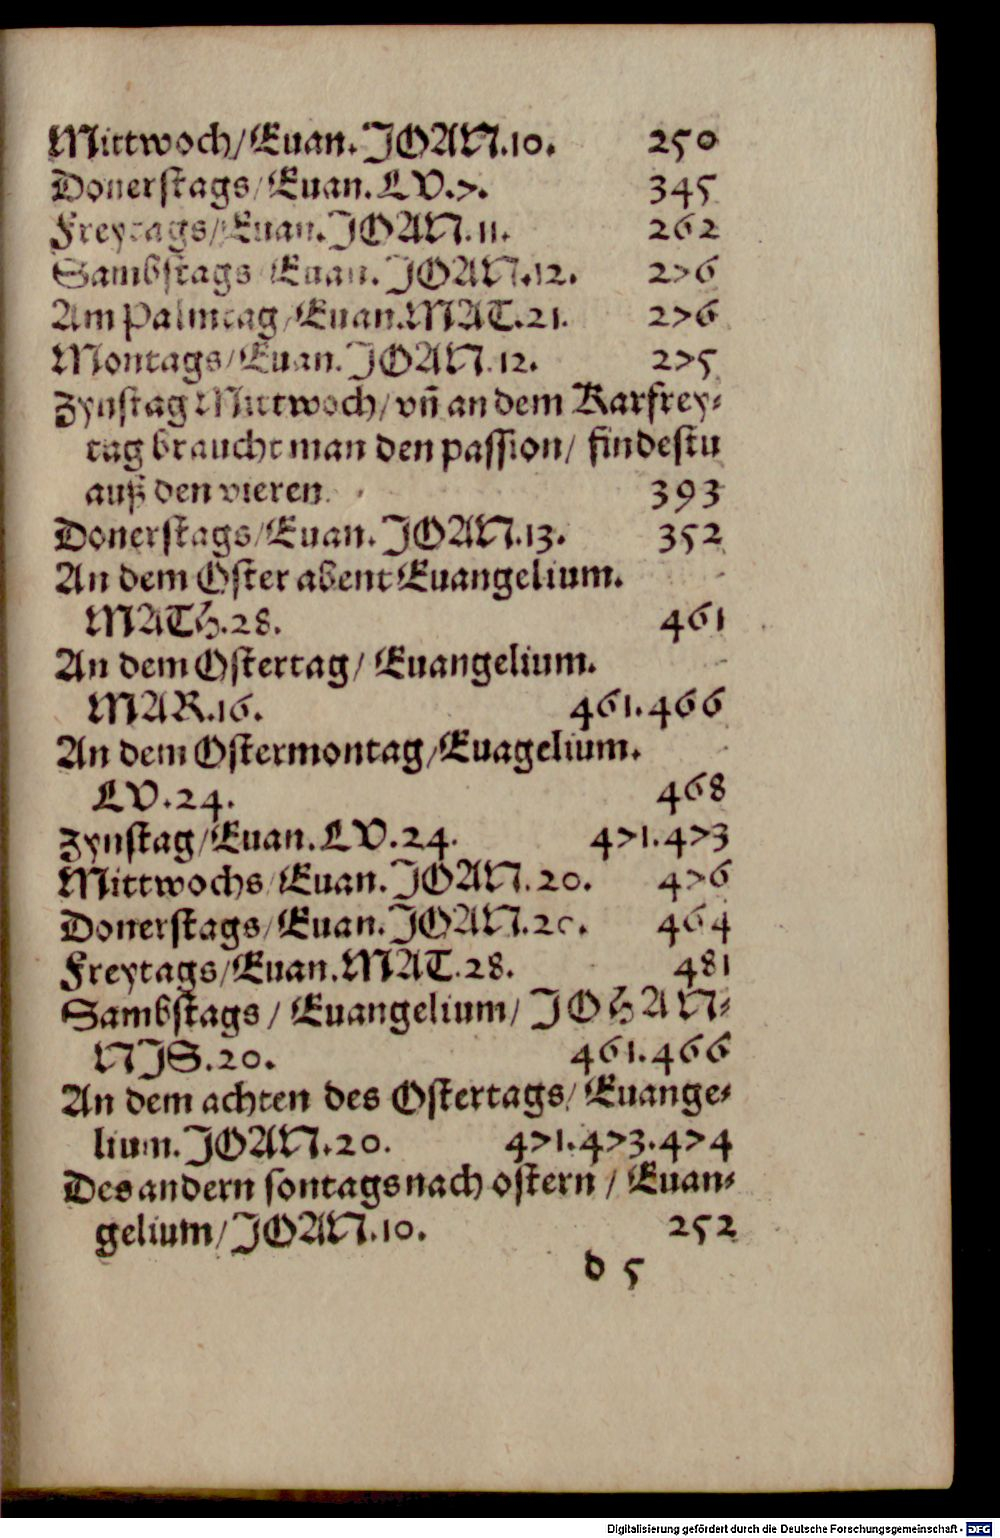 Mittwoch/Euan. JOAN.10. 250
Donerstags/Euan. LV.7. 345
Freytags/Euan. JOAN.11. 262
Sambstags Euan. JOAN.12. 276
Am Palmtag/Euan. MAT.21. 276
Montags/Euan. JOAN.12. 275
Zynstag Mittwoch/vñ an dem Karfrey⸗
tag braucht man den passion/ findestu
auß den vieren. 393
Donerstags/Euan. JOAN.13. 352
An dem Oster abent Euangelium.
MATH.28. 461
An dem Ostertag/ Euangelium.
MAR.16. 461.466
An dem Ostermontag/Euagelium.
LV.24. 468
Zynstag/Euan. LV.24. 471.473
Mittwochs/Euan. JOAN.20. 476
Donerstags/Euan. JOAN.20. 464
Freytags/Euan. MAT.28. 481
Sambstags/ Euangelium/ JOHAN⸗
NJS.20. 461.466
An dem achten des Ostertags/ Euange⸗
lium. JOAN.20. 471.473.474
Des andern sontags nach ostern/ Euan⸗
gelium/JOAN.10. 252
d 5
Digitalisierung gefördert durch die Deutsche Forschungsgemeinschaft - DFG